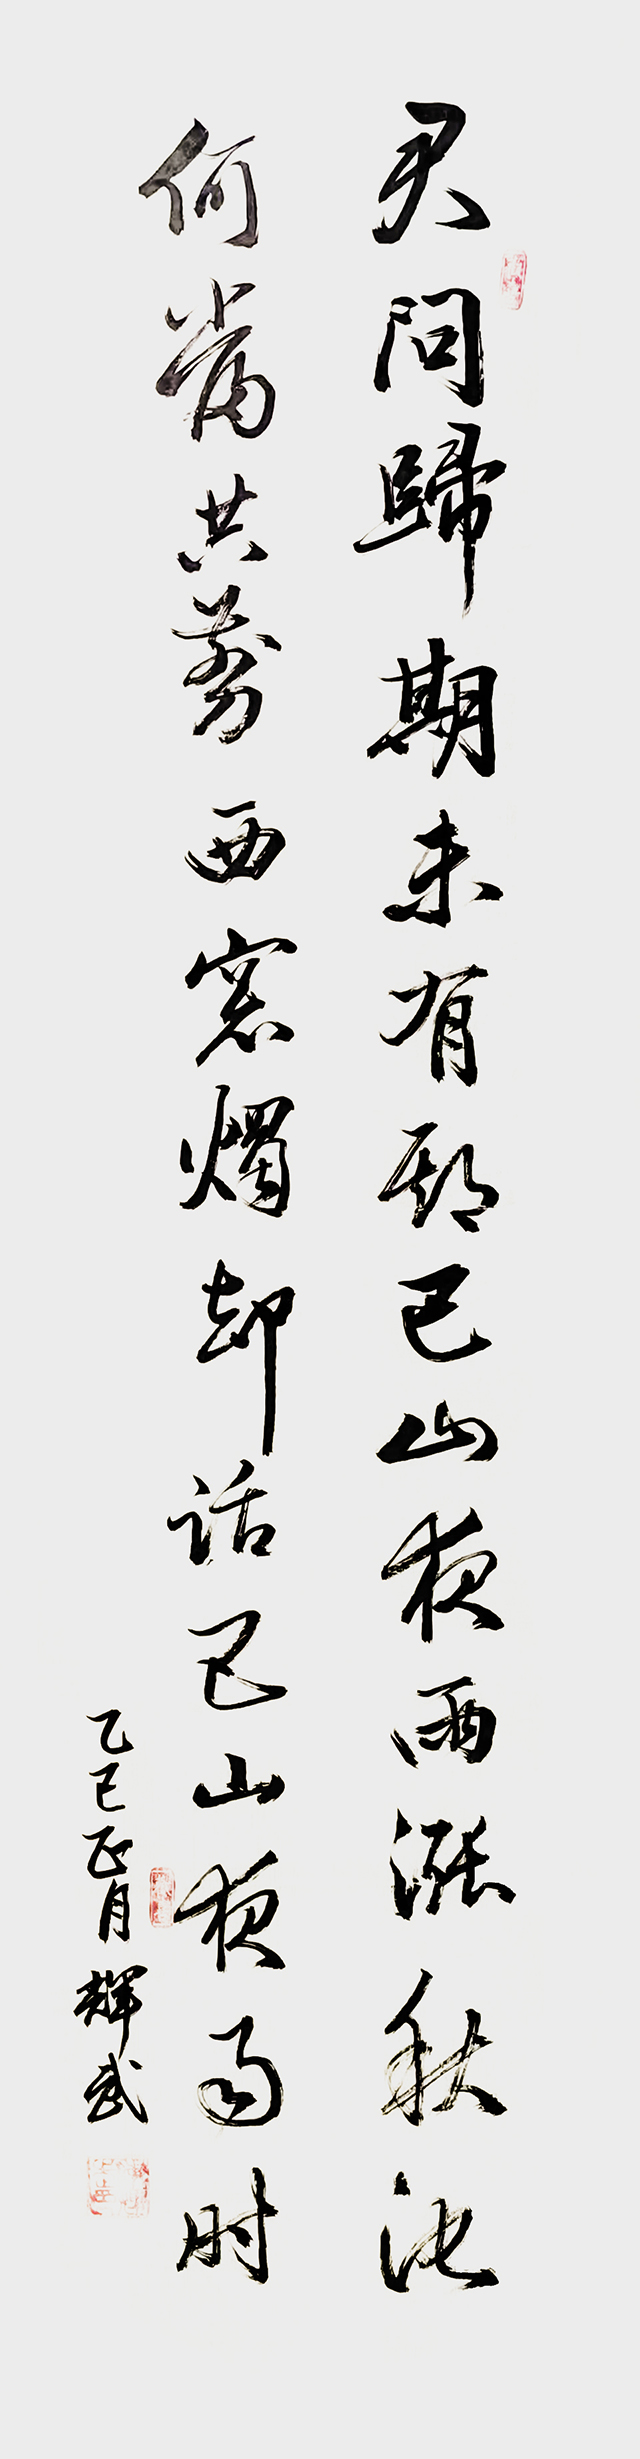 君问歸期未有期巴山夜雨漲秋池
何當共剪西窓燭却话巴山夜雨时
乙巳正月輝武